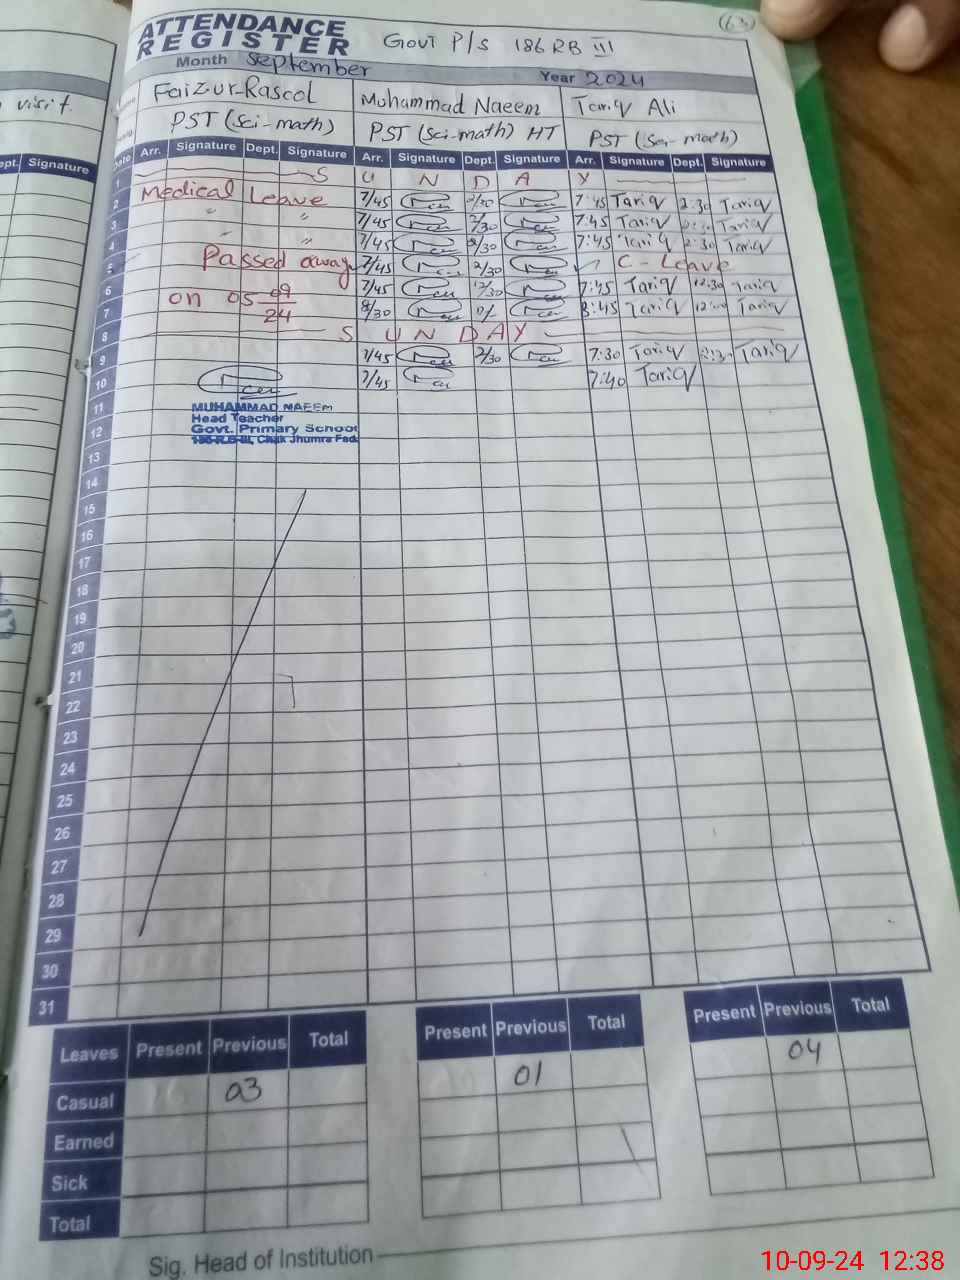 (63)
ATTENDANCE
REGISTER
GOVT P/S 186 RB III
Month September
Year 2024
visit.
Faiz-ur-Rasool Muhammad Naeem Tariq Ali
PST (Sci-math) PST (Sci-math) HT PST (Sci-math)
ept. Signature Date Arr. Signature Dept. Signature Arr. Signature Dept. Signature Arr. Signature Dept. Signature
1 S U N D A Y
2 Medical Leave 7/45 2/30 7:45 Tariq 2:30 Tariq
3 " " 7/45 2/30 7:45 Tariq 2:30 Tariq
4 " " 7/45 2/30 7:45 Tariq 2:30 Tariq
5 Passed away 7/45 2/30 C-Leave
6 on 05 09/24 7/45 12/30 7:45 Tariq 12:30 Tariq
7 8/30 8:45 Tariq Tariq
8 S U N D A Y
9 7/45 2/30 7:30 Tariq 2:30 Tariq
10 7/45 7:40 Tariq
11 MUHAMMAD NAEEM
Head Teacher
12 Govt. Primary School
186-R.B-III, Chak Jhumra Fsd.
13
14
15
16
17
18
19
20
21
22
23
24
25
26
27
28
29
30
31
Leaves Present Previous Total Present Previous Total Present Previous Total
Casual 03 01 04
Earned
Sick
Total
Sig. Head of Institution
10-09-24 12:38